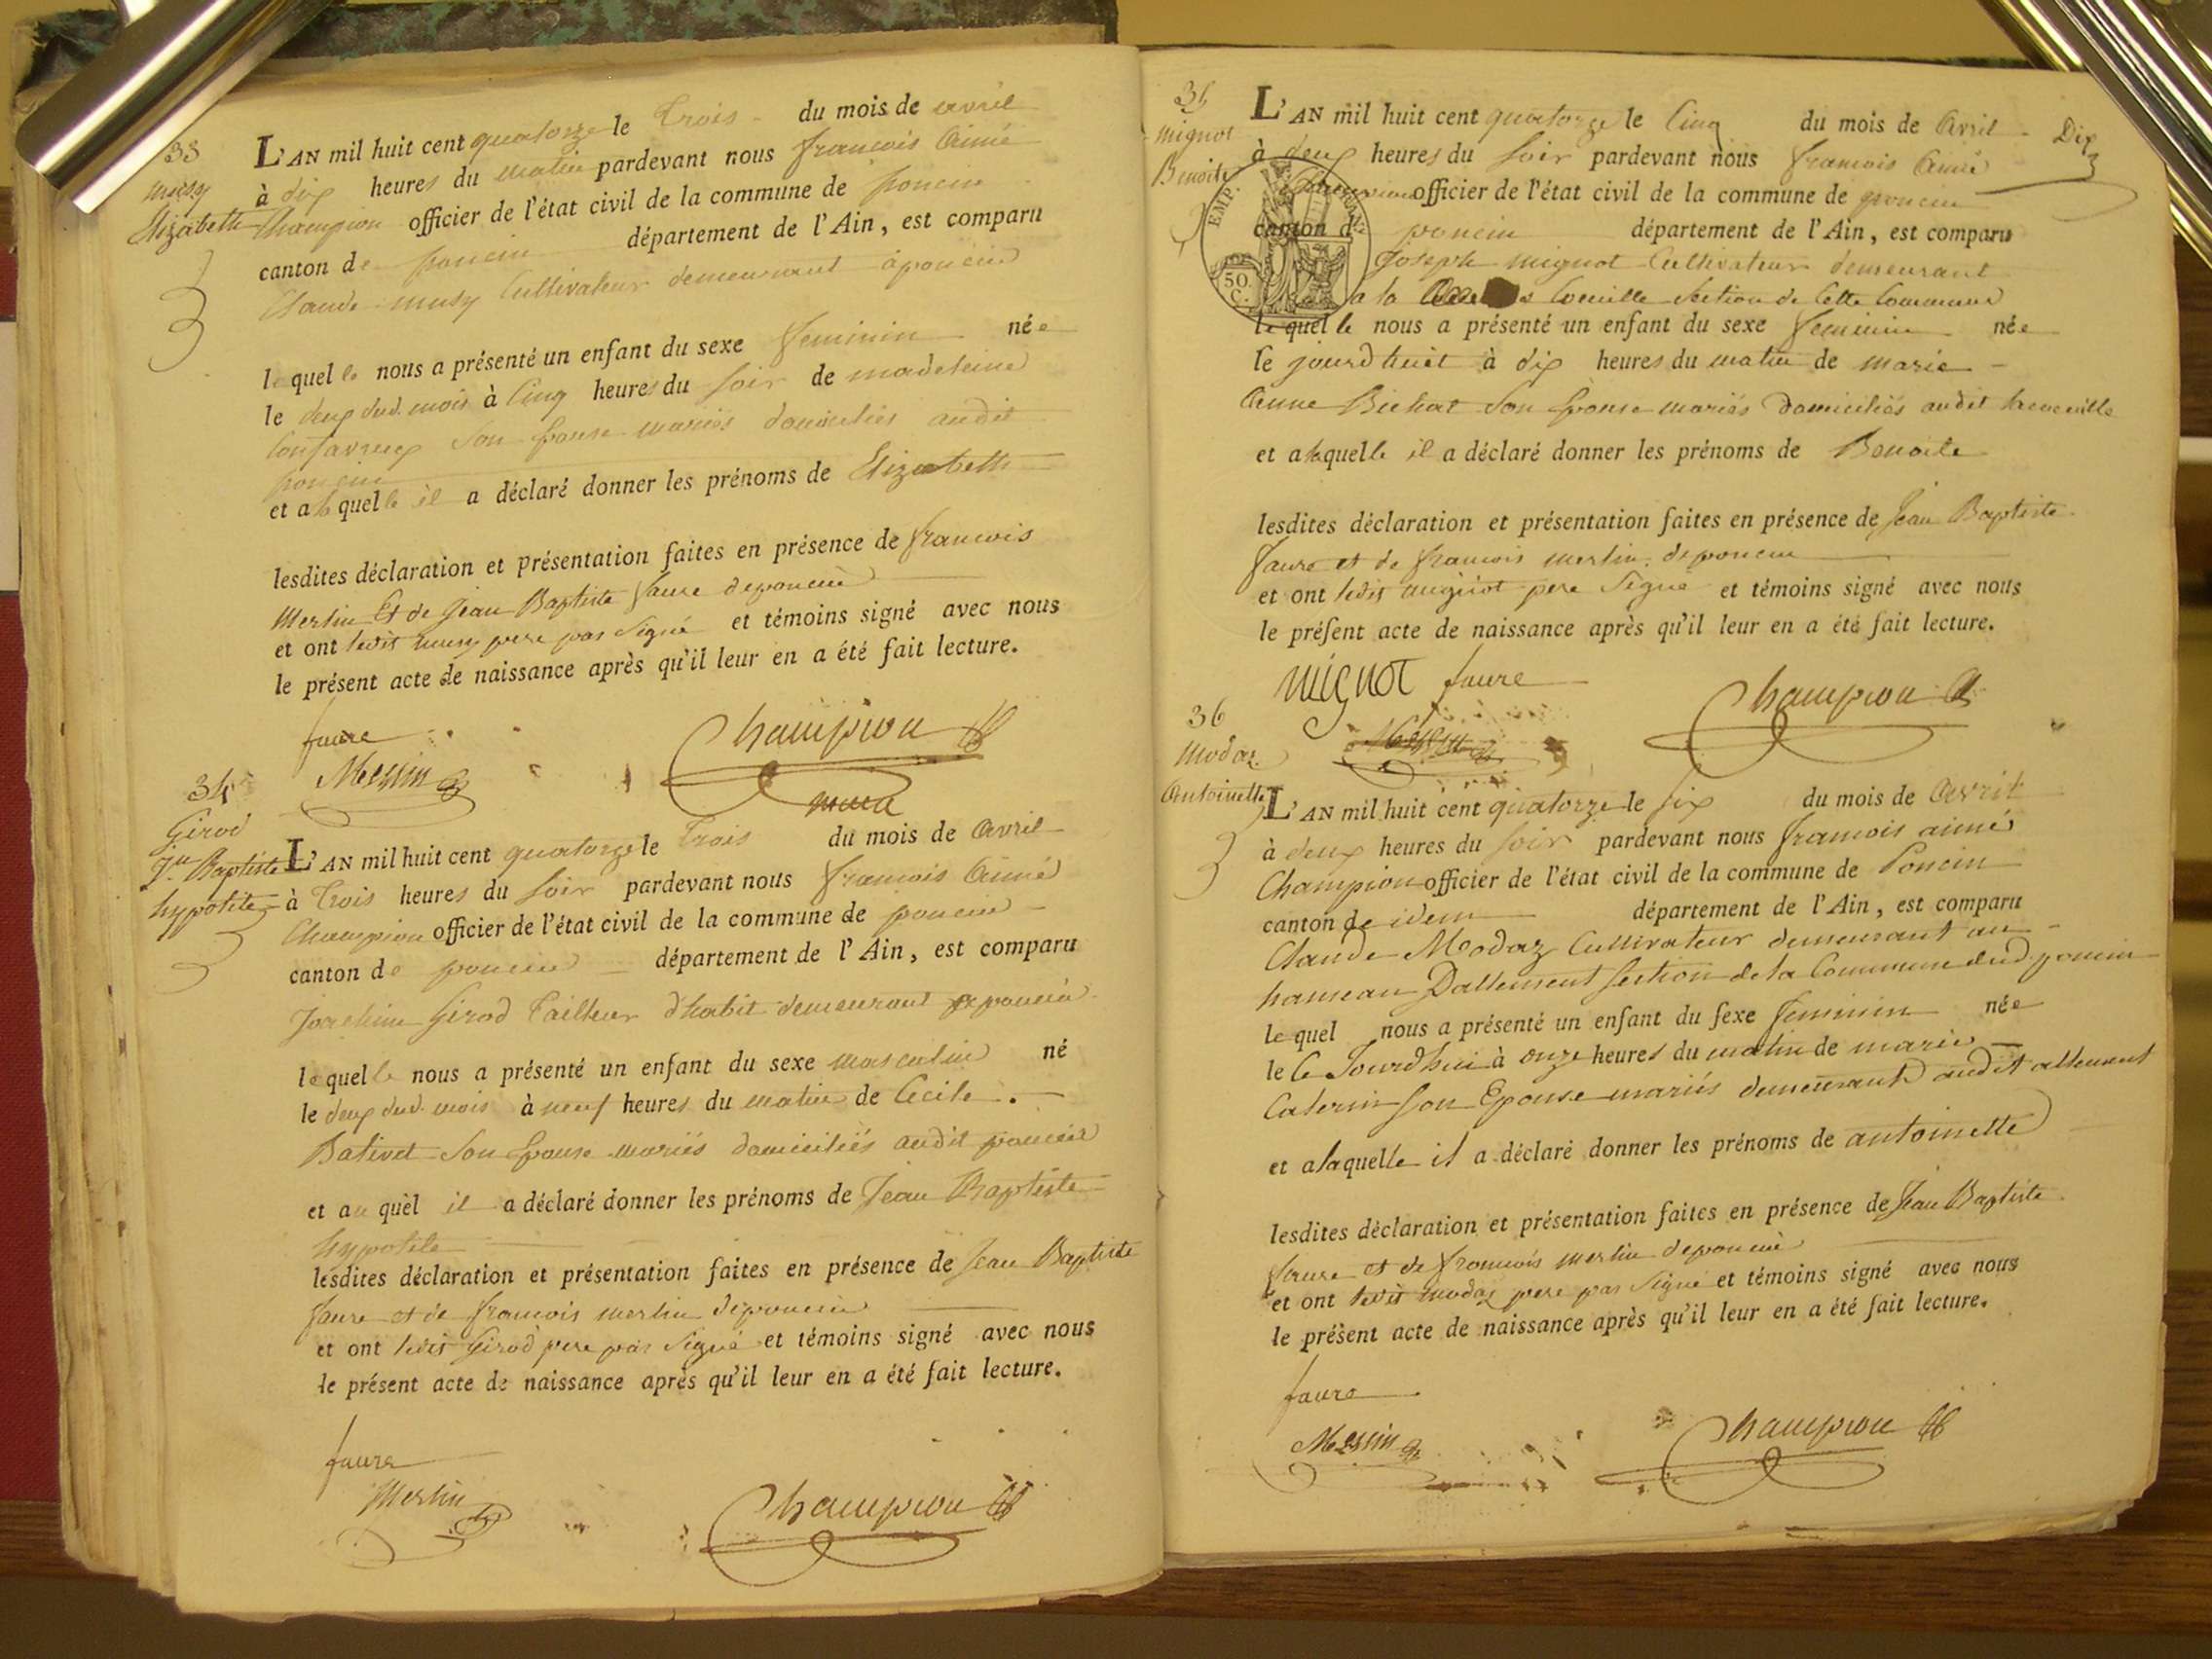 33
musy
Elizabeth
L'AN mil huit cent quatorze le trois du mois de avril
à dix heures du matin pardevant nous francois Aimé
Champion officier de l'état civil de la commune de poncin
canton de poncin département de l'Ain, est comparu
Claude musy Cultivateur demeurant à poncin
lequel le nous a présenté un enfant du sexe feminin née
le deux dud. mois à Cinq heures du soir de madeleine
son Epouse mariés domiciliés audit
poncin
et a laquelle il a déclaré donner les prénoms de Elizabeth
lesdites déclaration et présentation faites en présence de francois
Merlin Et de Jean Baptiste faure de poncin
et ont ledit musy pere pas signé et témoins signé avec nous
le présent acte de naissance après qu'il leur en a été fait lecture.
faure
Merlin
Champion
34
Girod
Jn Baptiste
hypolite
L'AN mil huit cent quatorze le trois du mois de Avril
à trois heures du soir pardevant nous francois Aimé
Champion officier de l'état civil de la commune de poncin
canton de poncin département de l'Ain, est comparu
Joachim Girod tailleur d'habit demeurant a poncin
lequel le nous a présenté un enfant du sexe masculin né
le deux dud. mois à neuf heures du matin de Cecile
Bativet son Epouse mariés domiciliés audit poncin
et au quel il a déclaré donner les prénoms de Jean Baptiste
hypolite
lesdites déclaration et présentation faites en présence de Jean Baptiste
faure et de francois merlin de poncin
et ont ledit Girod pere pas signé et témoins signé avec nous
le présent acte de naissance après qu'il leur en a été fait lecture.
faure
Merlin
Champion
35
mignot
Benoite
Dix
L'AN mil huit cent quatorze le Cinq du mois de Avril
à deux heures du soir pardevant nous francois Aimé
Champion officier de l'état civil de la commune de poncin
canton de poncin département de l'Ain, est comparu
EMP.
50
C.
Joseph mignot Cultivateur demeurant
a la section de cette Commune
le quel le nous a présenté un enfant du sexe feminin née
le jourdhuit à dix heures du matin de marie
Anne Bichat son Epouse mariés domiciliés audit
et a laquelle il a déclaré donner les prénoms de Benoite
lesdites déclaration et présentation faites en présence de Jean Baptiste
faure et de francois merlin de poncin
et ont ledit mignot pere signé et témoins signé avec nous
le présent acte de naissance après qu'il leur en a été fait lecture.
mignot faure
Merlin
Champion
36
modaz
Antoinette
L'AN mil huit cent quatorze le six du mois de Avril
à deux heures du soir pardevant nous francois aimé
Champion officier de l'état civil de la commune de Poncin
canton de idem département de l'Ain, est comparu
Claude Modaz Cultivateur demeurant au
hameau Dallement section de la Commune dud. poncin
le quel nous a présenté un enfant du sexe feminin née
le Ce Jourdhui à onze heures du matin de marie
Caterin son Epouse mariés demeurants audit allement
et a laquelle il a déclaré donner les prénoms de antoinette
lesdites déclaration et présentation faites en présence de Jean Baptiste
faure et de francois merlin de poncin
et ont ledit modaz pere pas signé et témoins signé avec nous
le présent acte de naissance après qu'il leur en a été fait lecture.
faure
Merlin
Champion